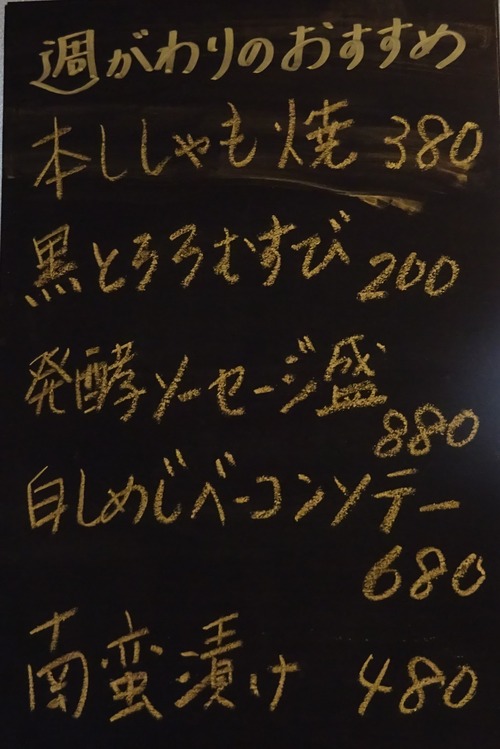 週がわりのおすすめ
本ししゃも焼 380
黒とろろむすび 200
発酵ソーセージ盛
880
白しめじベーコンソテー
680
南蛮漬け 480